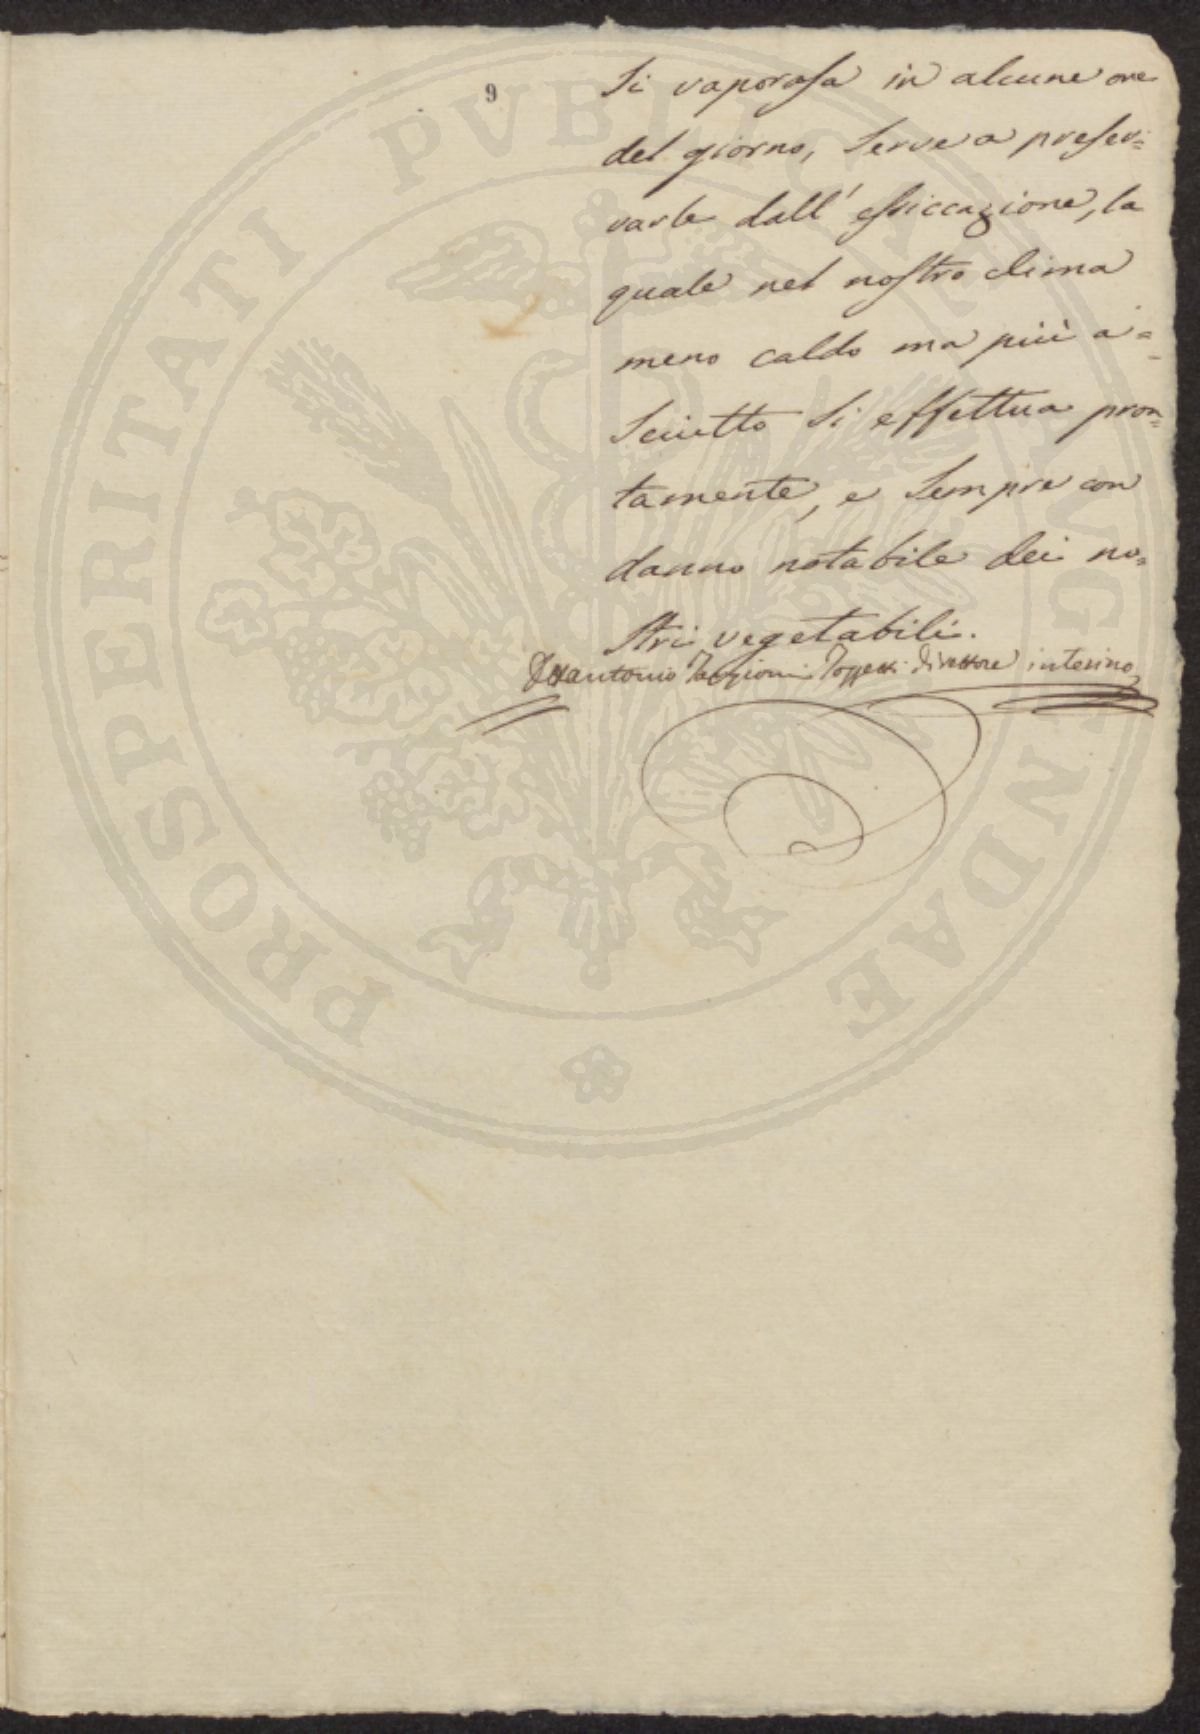 9
Si vaporosa in alcune ore
del giorno, Serve a preser=
varle dall' essiccazione, la
quale nel nostro clima
meno caldo ma più a=
Sciutto Si effettua pron=
tamente, e Sempre con
danno notabile dei no=
Stri vegetabili.
Ottaviano Targioni Tozzetti direttore interino
PROSPERITATI PVBLICAE AVGENDAE